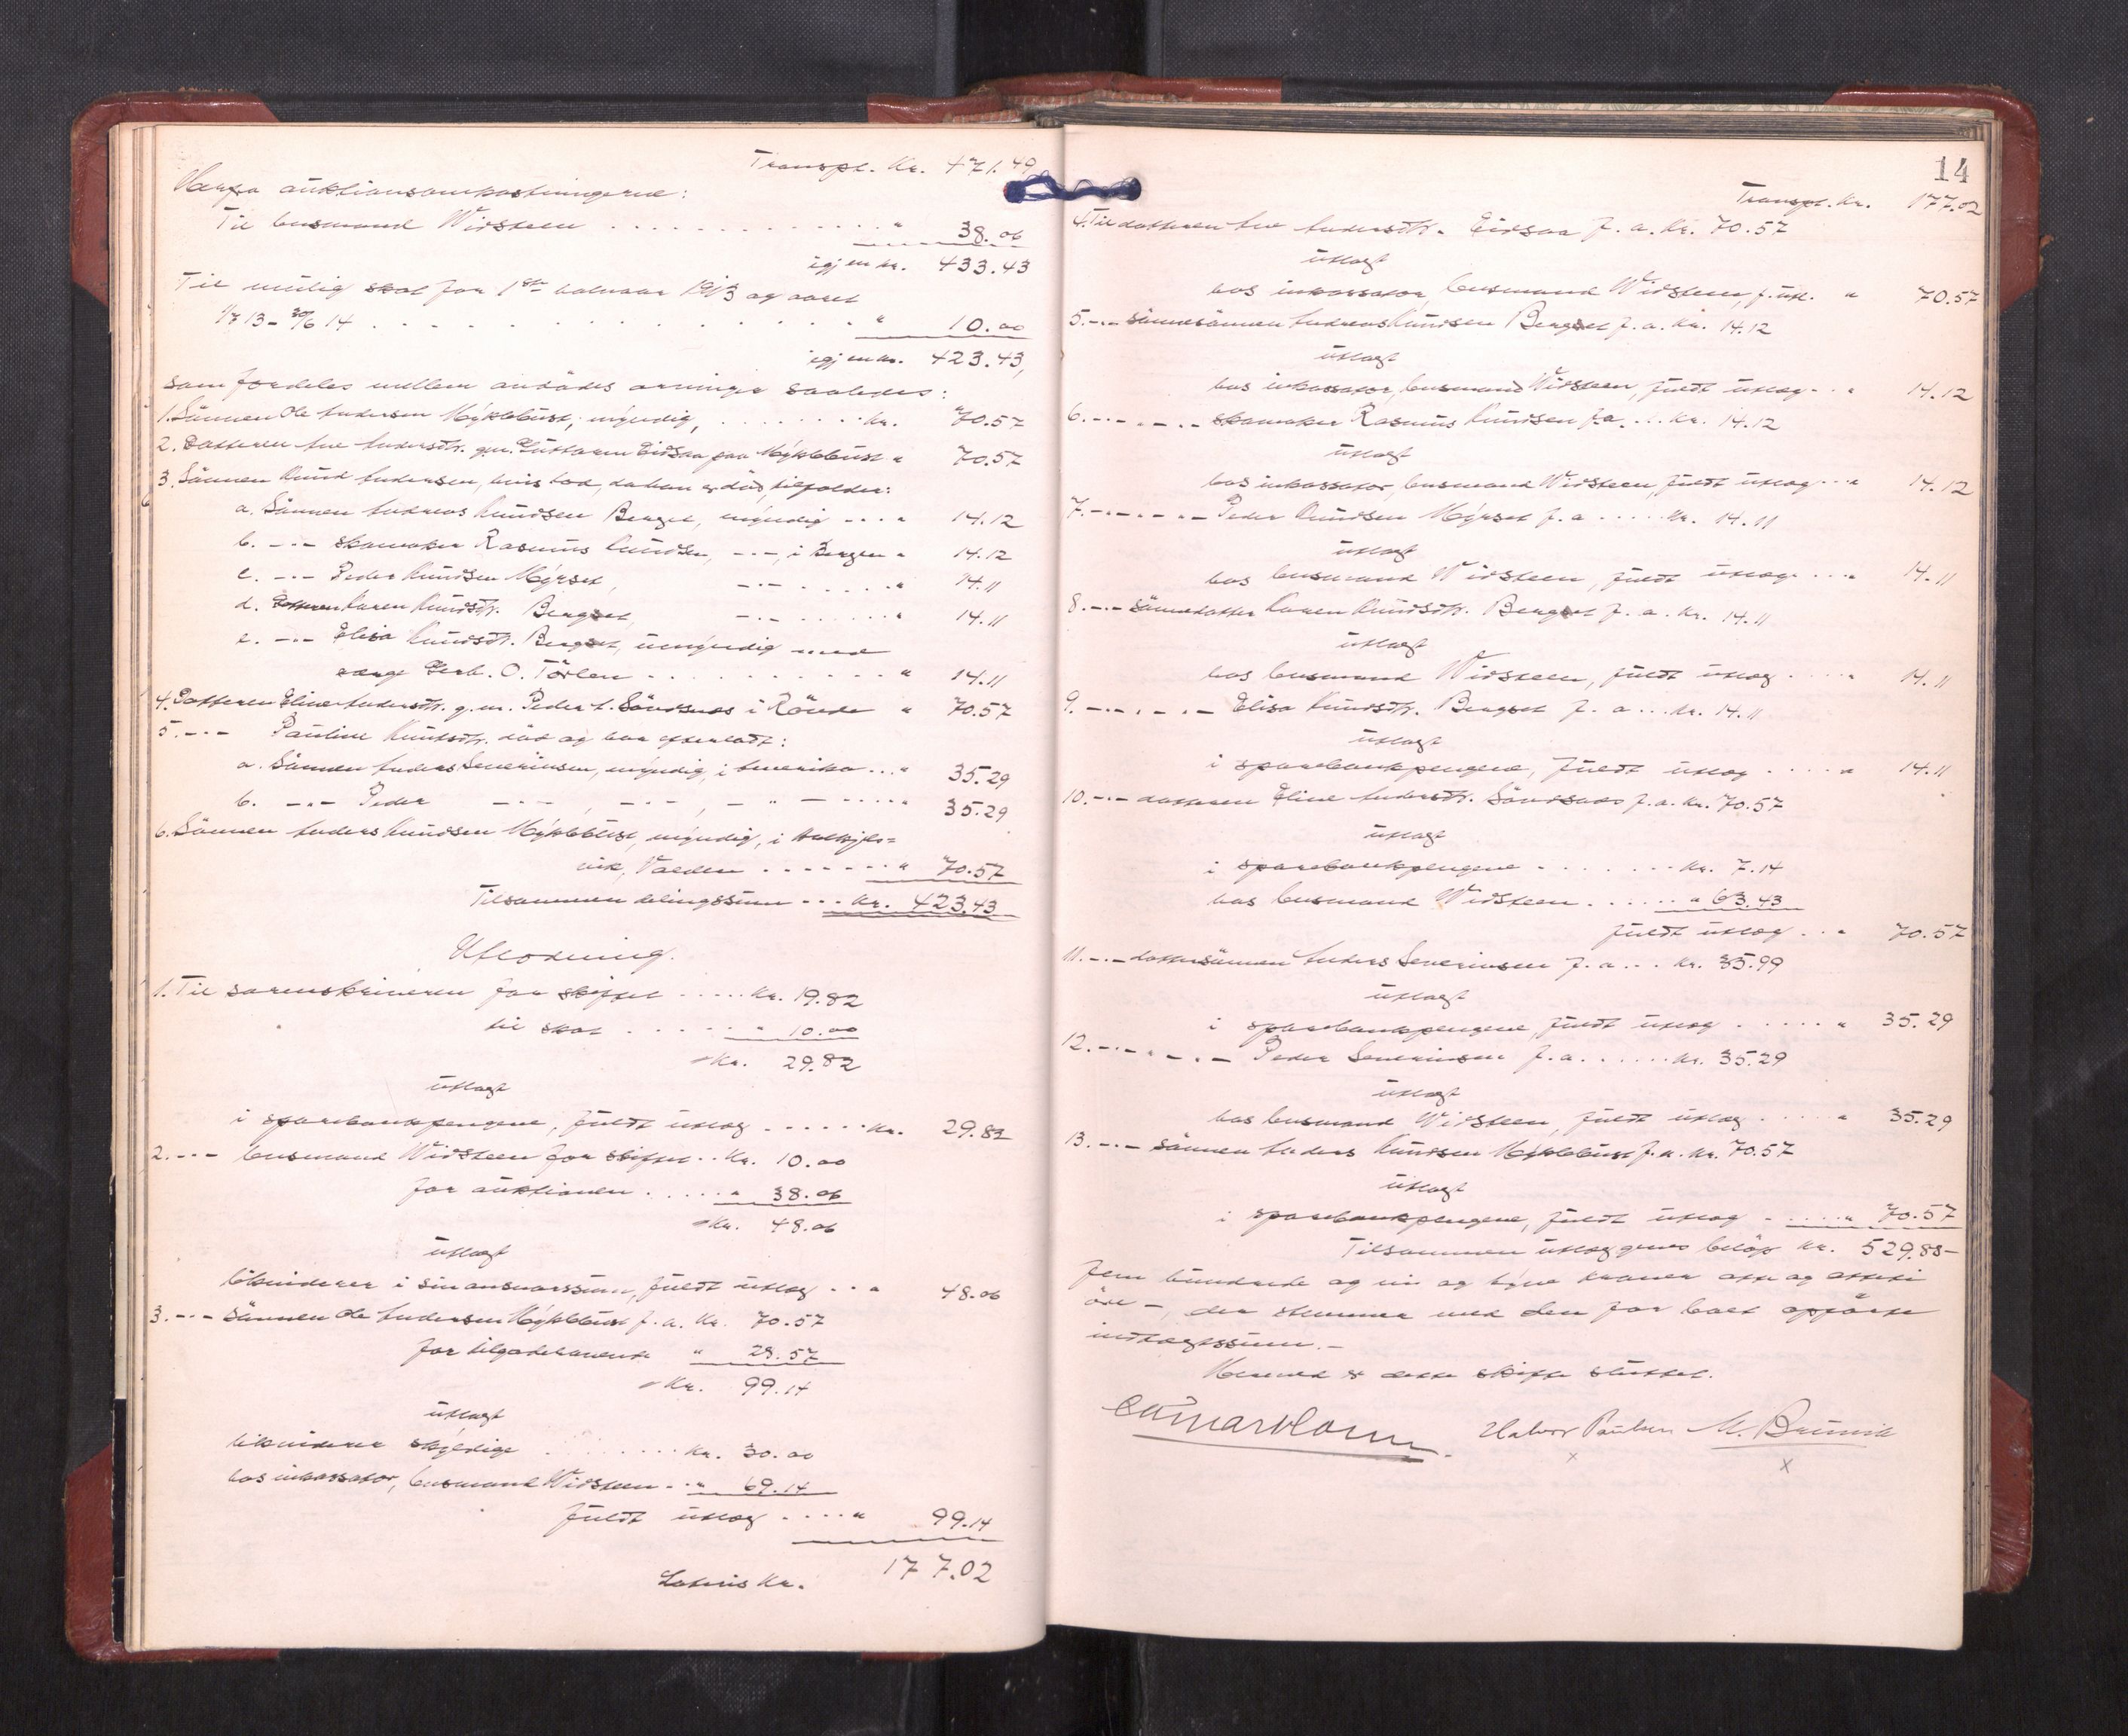 Transpt. Kr. 471.49
Herfra auktionsomkostningerne:
Til lensmand Widsteen . . . . . . . . . . . . . " 38.06
igjen kr. 433.43
Til mulig skat for 1ste halvaar 1913 og aaret
1/7 13 - 30/6 14 . . . . . . . . . . . " 10.00
igjen kr. 423.43,
som fordeles mellem avdødes arvinger saaledes:
1. Sønnen Ole Andersen Myklebust, myndig, . . . . . . . kr. 70.57
2. Datteren Ane Andersdtr. g.m. Guttorm Eidsaa paa Myklebust " 70.57
3. Sønnen Knud Andersen, hvis lod, da han er død, tilfalder:
a. Sønnen Andreas Knudsen Berget, myndig - - - " 14.12
b. -"- skomaker Rasmus Knudsen, -"-, i Bergen " 14.12
c. -"- Peder Knudsen Myrset, -"- . . . . . " 14.11
d. Datteren Karen Knudsdtr. Bergset, -"- . . . . . . " 14.11
e. -"- Elisa Knudsdtr. Bergset, umyndig med
verge O. Tørlen . . . . . . . . . . " 14.11
4. Datteren Eline Andersdtr. g.m. Peder A. Sandsnes i Rønde " 70.57
5. -"- Pauline Knutsdtr. død og har efterladt:
a. Sønnen Anders Severinsen, myndig, i Amerika . . . " 35.29
b. -"- Peder -"- , -"- , - " - - - - - " 35.29
6. Sønnen Anders Knudsen Myklebust, myndig, i
vik, Valden . . . . . . . " 70.57
Tilsammen delingssum - - - kr. 423.43
Utlodning.
1. Til sorenskriveren for skiftet . . . . . kr. 19.82
til skat . . . . . . " 10.00
Kr. 29.82
utlagt
i sparebankpengene, fuldt utlæg . . . . . . kr. 29.82
2. -"- lensmand Widsteen for skiftet . . kr. 10.00
for auktionen . . . . . " 38.06
Kr. 48.06
utlagt
likviderer i sin ansvarssum, fuldt utlæg . . " 48.06
3. -"- Sønnen Ole Andersen Myklebust f. a. Kr. 70.57
for tilgodehavende " 28.57
Kr. 99.14
utlagt
likviderer skyldige . . . . . . . kr. 30.00
hos inkassator, lensmand Widsteen - . " 69.14
fuldt utlæg . . . . " 99.14
Lateris Kr. 177.02
14
Transpt. Kr. 177.02
4. Til datteren Ane Andersdtr. Eidsaa f. a. kr. 70.57
utlagt
hos inkassator, lensmand Widsteen, f. utl. " 70.57
5. -"- sønnesønnen Andreas Knudsen Bergset f. a. kr. 14.12
utlagt
hos inkassator, lensmand Widsteen, fuldt utlæg - . " 14.12
6. -"- - " - skomaker Rasmus Knudsen f. a. . . . kr. 14.12
utlagt
hos inkassator, lensmand Widsteen, fuldt utlæg . . . " 14.12
7. -"- - " - Peder Knudsen Myrset f. a . . . . . kr. 14.11
utlagt
hos lensmand Widsteen, fuldt utlæg . . . " 14.11
8. -"- sønnedatter Karen Knudsdtr. Bergset f. a. kr. 14.11
utlagt
hos lensmand Widsteen, fuldt utlæg . . . . " 14.11
9. -"- - " - Elisa Knudsdtr. Bergset f. a . . . kr. 14.11
utlagt
i sparebankpengene, fuldt utlæg . . . . " 14.11
10. -"- datteren Eline Andersdtr. Sandsnes f. a. kr. 70.57
utlagt
i sparebankpengene . . . . . . . kr. 7.14
hos lensmand Widsteen . . . . . . " 63.43
fuldt utlæg . . " 70.57
11. -"- dattersønnen Anders Severinsen f. a . . . kr. 35.99
utlagt
i sparebankpengene, fuldt utlæg . . . . . " 35.29
12. -"- - " - Peder Severinsen f. a. . . . . . kr. 35.29
utlagt
hos lensmand Widsteen, fuldt utlæg . . . . . " 35.29
13. -"- sønnen Anders Knudsen Myklebust f. a. kr. 70.57
utlagt
i sparebankpengene, fuldt utlæg - . . . . . " 70.57
Tilsammen utlæggenes beløp kr. 529.88 -
fem hundrede og ni og tyve kroner otte og otti
øre -, der stemmer med den for boet opførte
indtægtssum. -
Hermed er dette skifte sluttet.
Halvor Paulsen M. Brunvik
x x